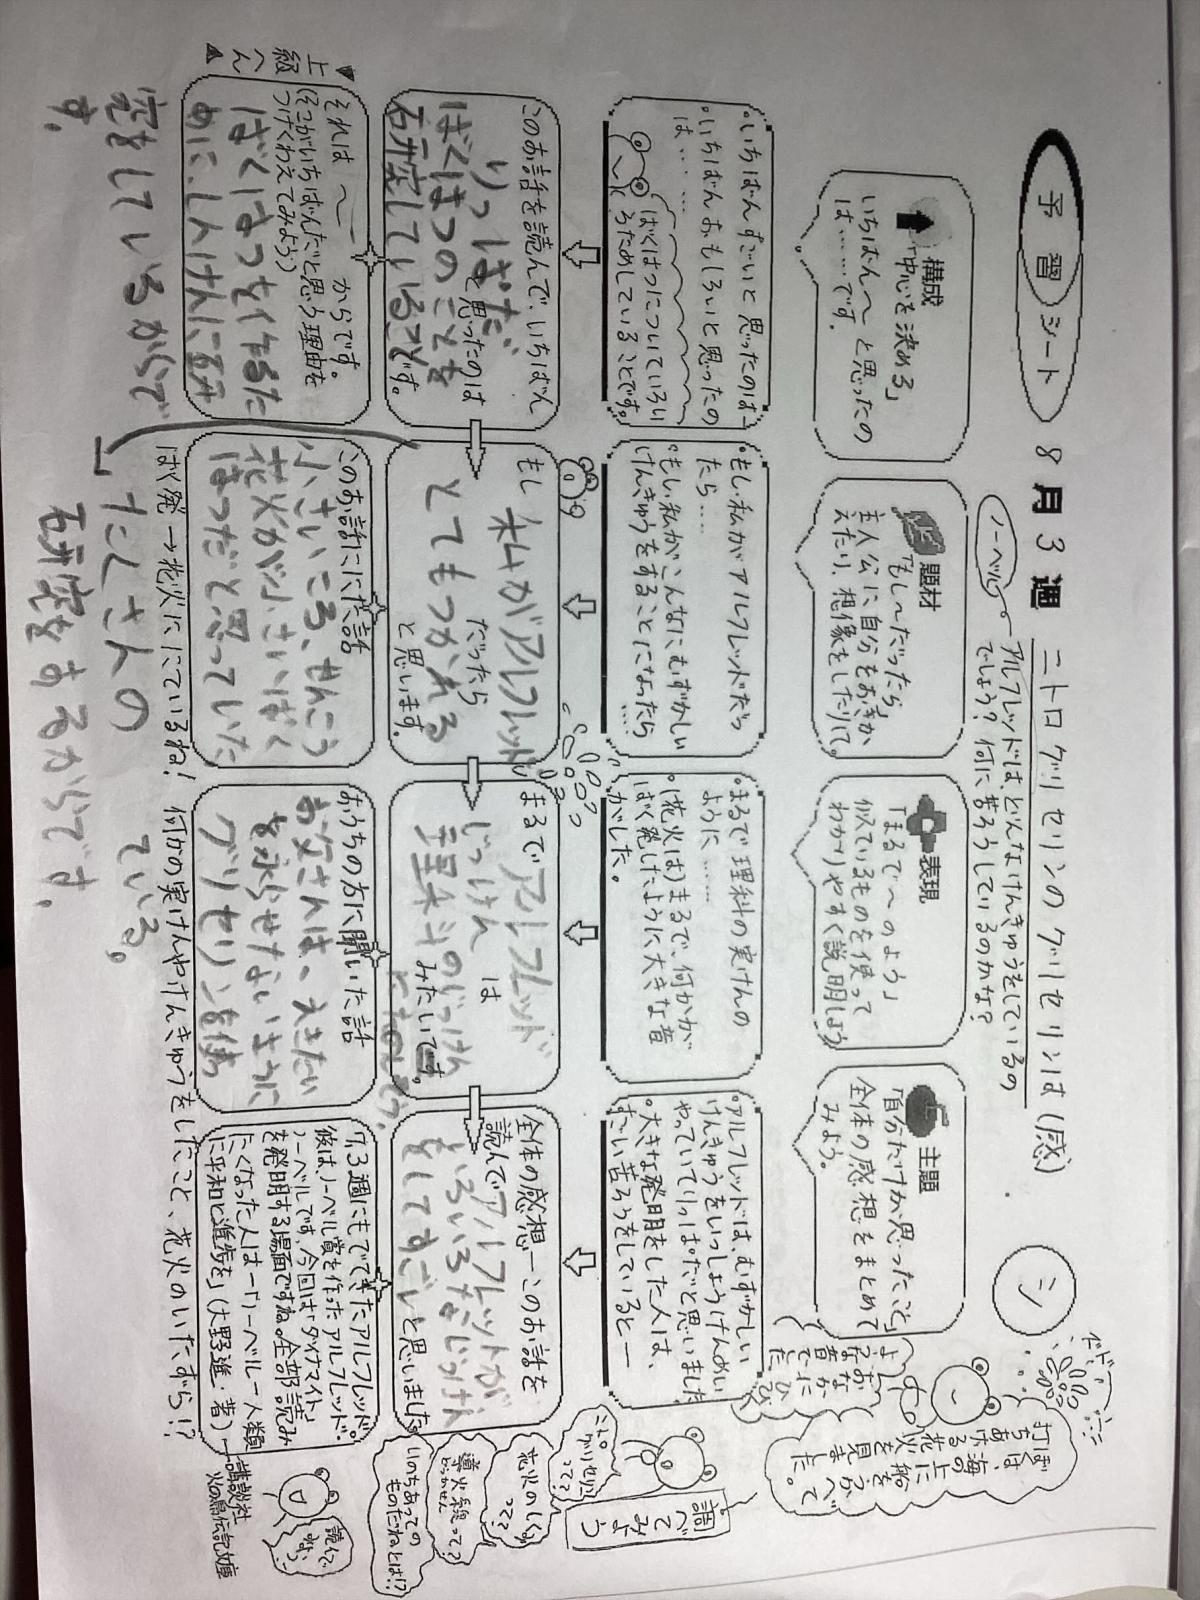 予習シート 8月3週 ニトログリセリンのグリセリンは(感) シ
ノーベル
アルフレッドは、どんなけんきゅうをしているの
でしょう?何に苦ろうしているのかな?
構成
「中心を決める」
いちばん〜と思ったの
は……です。
題材
「もし〜だったら」
主人公に自分をおきか
えたり、想像をしたりして。
表現
「まるで〜のよう」
似ているものを使って
わかりやすく説明しよう
主題
「自分だけが思ったこと」
全体の感想をまとめて
みよう。
ぼくは、海の上に船をうかべて
打ちあげる花火を見ました。
・いちばんすごいと思ったのは…
・いちばんおもしろいと思ったの
は……
ばくはつについていろい
ろためしていることです。
・もし私がアルフレッドだっ
たら……
・もし私がこんなにむずかしい
けんきゅうをすることになったら…
・まるで理科の実けんの
ように……
・(花火は)まるで、何かが
ばく発したように大きな音
がした。
・アルフレッドは、むずかしい
けんきゅうをいっしょうけんめい
やっていてりっぱだと思いました
・大きな発明をした人は、
すごい苦ろうをしていると…
調べてみよう
グリセリン
って?
花火のしくみ
って?
導火線って?
どうかせん
いのちあっての
ものだねとは!?
このお話を読んで、いちばん
りっぱだ
と思ったのは
ばくはつのことを
研究していることです。
もし 私がアルフレッド
だったら
とてもつかれる
と思います。
まるでアルフレッド
は
じっけん
理科のじっけん
みたいです。
全体の感想—このお話を
読んでアルフレッドが
いろいろなじっけん
をしてすごいと思いました。
▼上級へん▲
それは 〜 からです。
(そこがいちばんだと思う理由を
つけくわえてみよう)
ばくはつを作るた
めに、しんけんに研
究をしているからで
す。
このお話ににた話
小さいころ、せんこう
花火が小さいばく
はつだと思っていた
おうちの方に聞いた話
お父さんは、えきたい
を氷らせないように
グリセリンを使っ
ている。
7.3週にもでてきたアルフレッド。
彼は、ノーベル賞を作ったアルフレッド・
ノーベルです。今回は「ダイナマイト」
を発明する場面ですね。全部読み
たくなった人は—「ノーベル—人類
に平和と進歩を」(大野進・著)—講談社
火の鳥伝記文庫
読んで
みよう
ばく発→花火ににているね! 何かの実けんやけんきゅうをしたこと、花火のいたずら!?
たくさんの
研究をするからです。